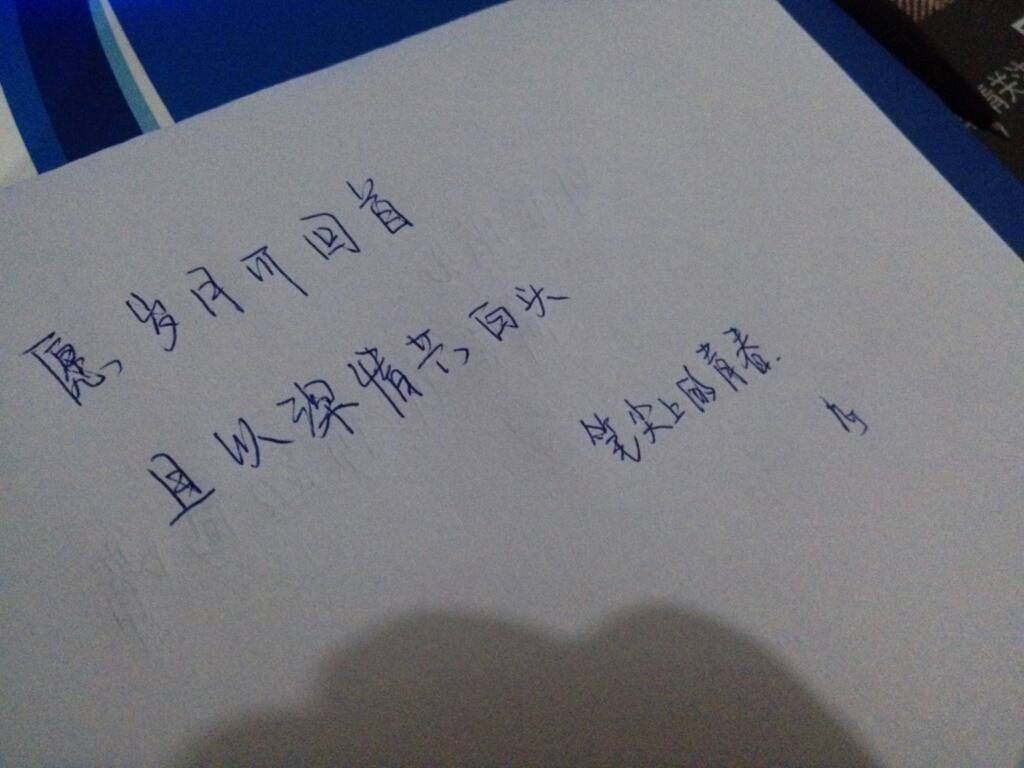 愿岁月可回首
且以深情共白头
笔尖上的青春.